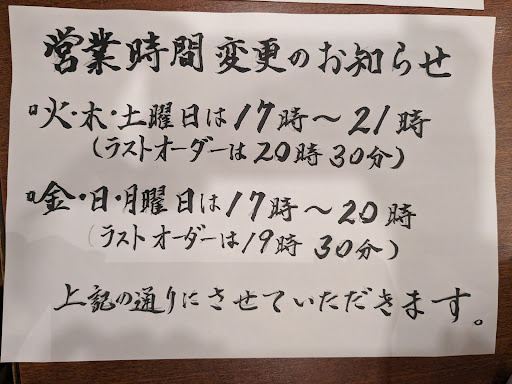 営業時間変更のお知らせ
火・木・土曜日は17時〜21時
(ラストオーダーは20時30分)
金・日・月曜日は17時〜20時
(ラストオーダーは19時30分)
上記の通りにさせていただきます。